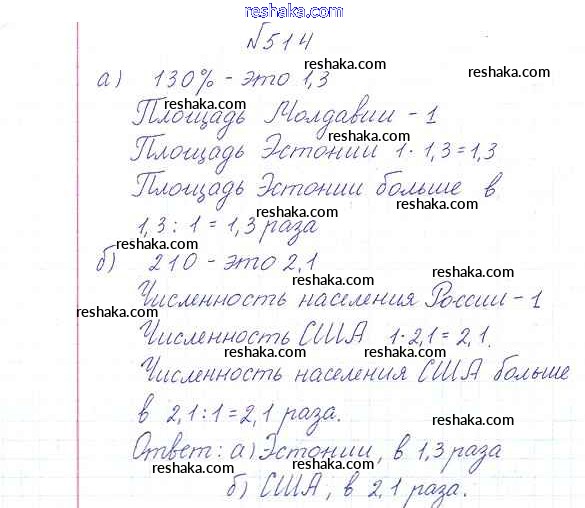 reshaka.com
№514
reshaka.com reshaka.com
а) 130% - это 1,3
reshaka.com reshaka.com
Площадь Молдавии - 1
reshaka.com
Площадь Эстонии 1 · 1,3 = 1,3
reshaka.com reshaka.com
Площадь Эстонии больше в
reshaka.com
1,3 : 1 = 1,3 раза
reshaka.com
reshaka.com
б) 210 - это 2,1
reshaka.com reshaka.com
Численность населения России - 1
reshaka.com
Численность США 1 · 2,1 = 2,1.
reshaka.com reshaka.com
Численность населения США больше
reshaka.com
в 2,1 : 1 = 2,1 раза.
reshaka.com
Ответ: а) Эстонии, в 1,3 раза
reshaka.com reshaka.com
б) США, в 2,1 раза.
reshaka.com